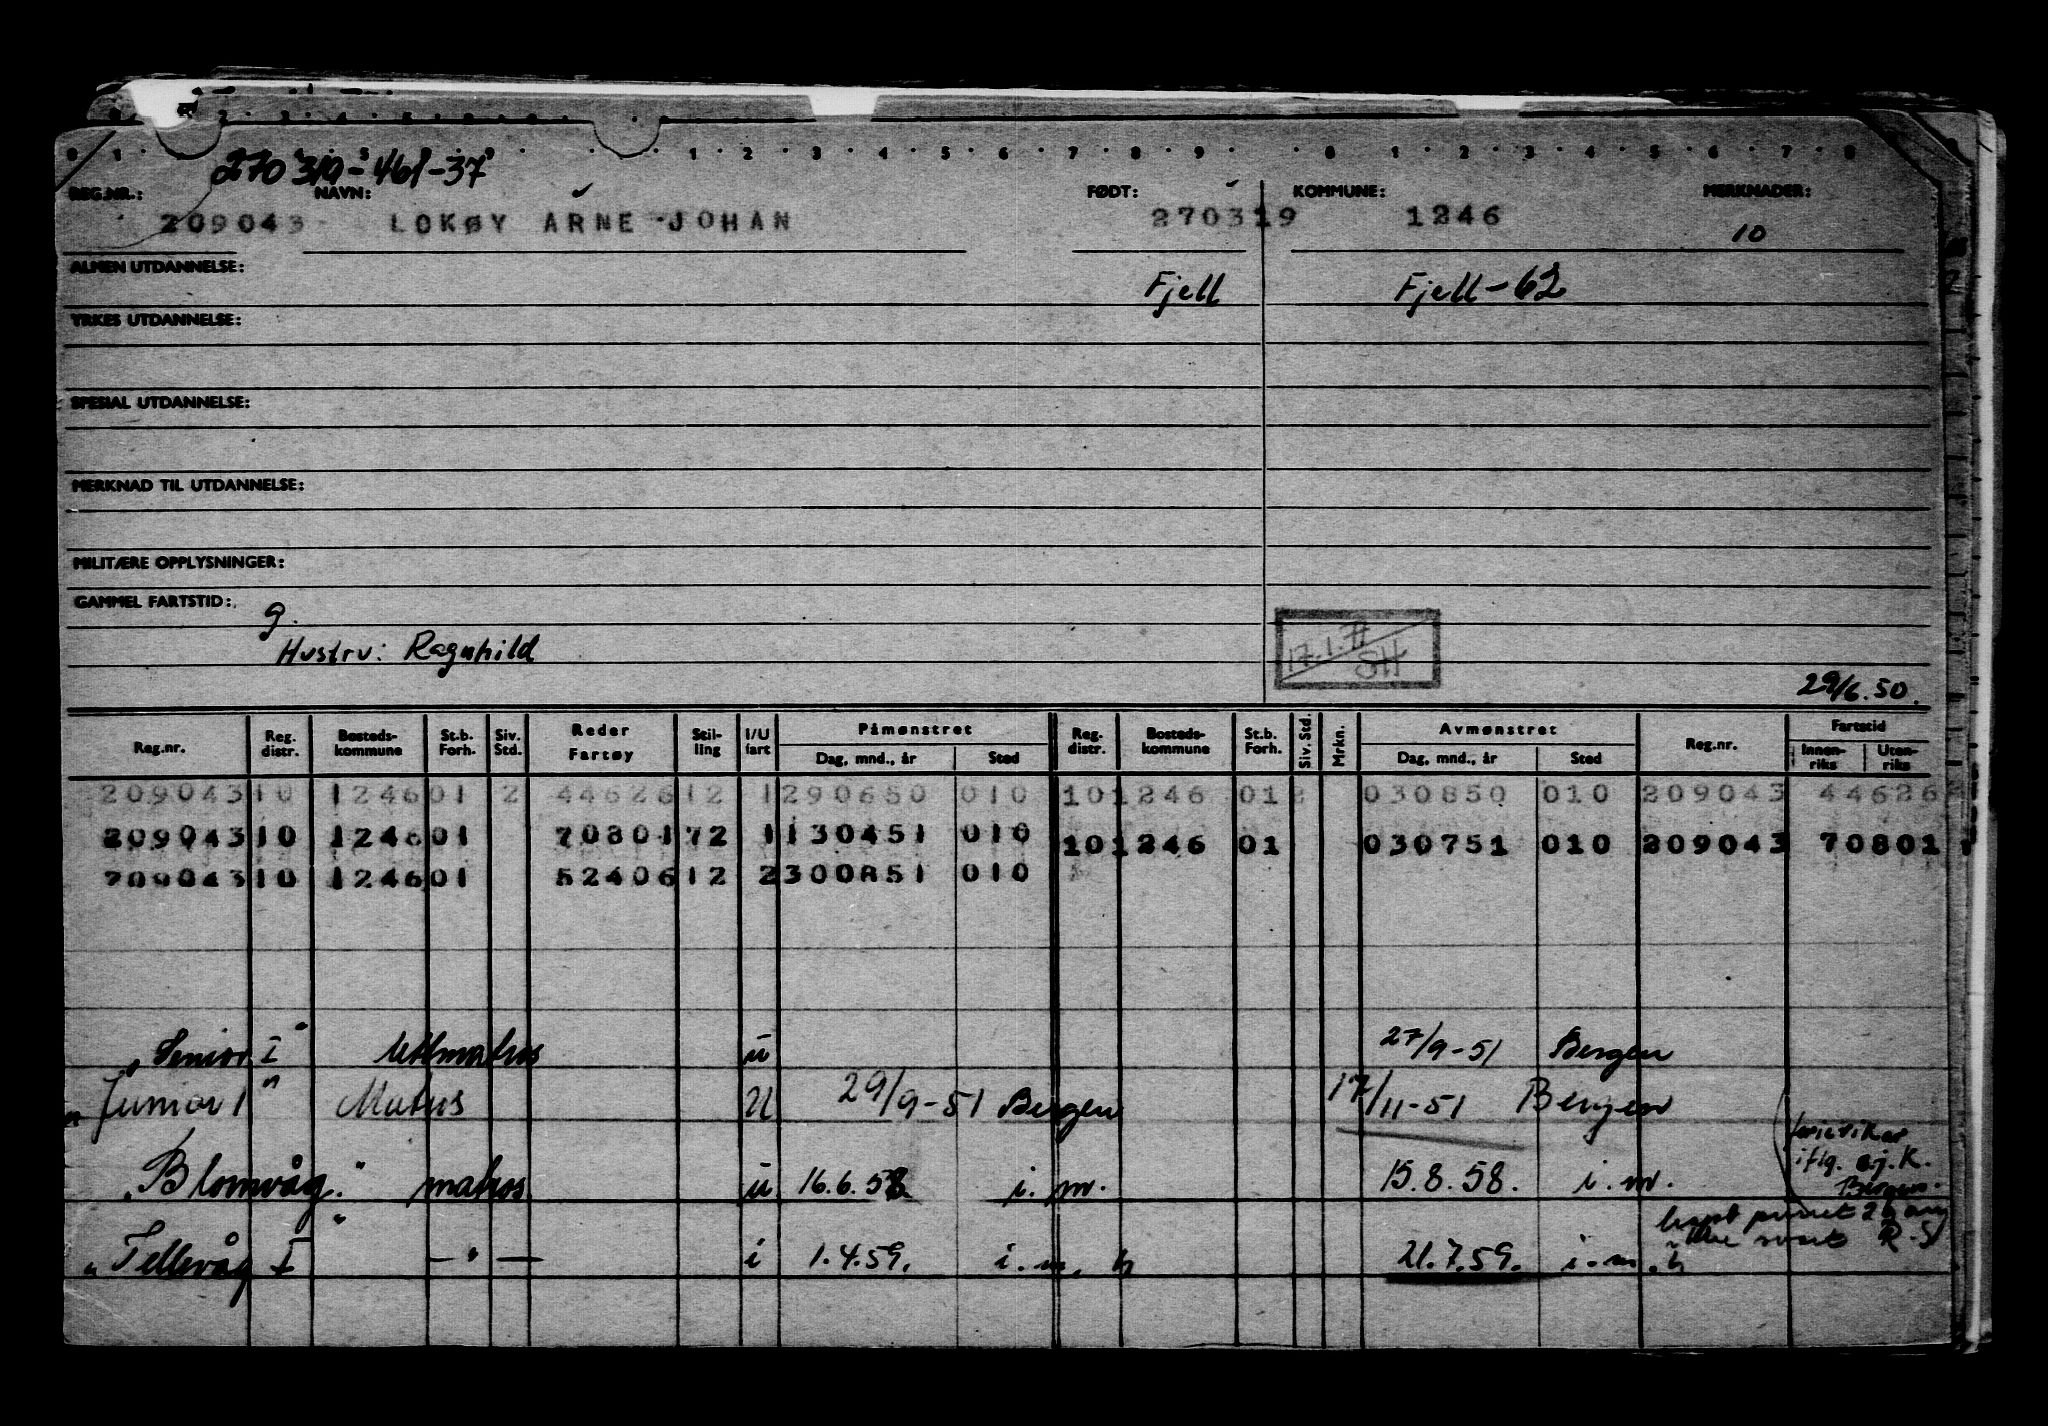 270319-461-37
REG.NR.: NAVN: FØDT: KOMMUNE: MERKNADER:
209043 LOKØY ARNE JOHAN 270319 1246 10
ALMEN UTDANNELSE:
Fjell Fjell-62
YRKES UTDANNELSE:
SPESIAL UTDANNELSE:
MERKNAD TIL UTDANNELSE:
MILITÆRE OPPLYSNINGER:
GAMMEL FARTSTID:
g.
Hustru: Ragnhild
17.1. SH
29/6.50.
Reg.nr. Reg. distr. Bosteds- kommune St.b. Forh. Siv. Std. Reder Fartøy Stil- ling I/U fart Påmønstret Dag, mnd., år Sted Reg. distr. Bosteds- kommune St.b. Forh. Siv. Std. Mrkn. Avmønstret Dag, mnd., år Sted Reg.nr. Fartstid Innen- riks Uten- riks
209043 10 1246 01 2 44626 12 1 290650 010 10 1246 01 2 030850 010 209043 44626
209043 10 1246 01 70801 72 1 130451 010 10 1246 01 030751 010 209043 70801
209043 10 1246 01 52406 12 2 300851 010
"Senior I" lettmatros u 27/9-51 Bergen
"Junior I" Matros U 29/9-51 Bergen 17/11-51 Bergen
"Blomvåg." matros u 16.6.58 i. m. 15.8.58. i. m.
ferievikar
iflg. a.j.k.
Bergen.
"Tellevåg I" —"— i 1.4.59. i. m. 21.7.59. i. m.